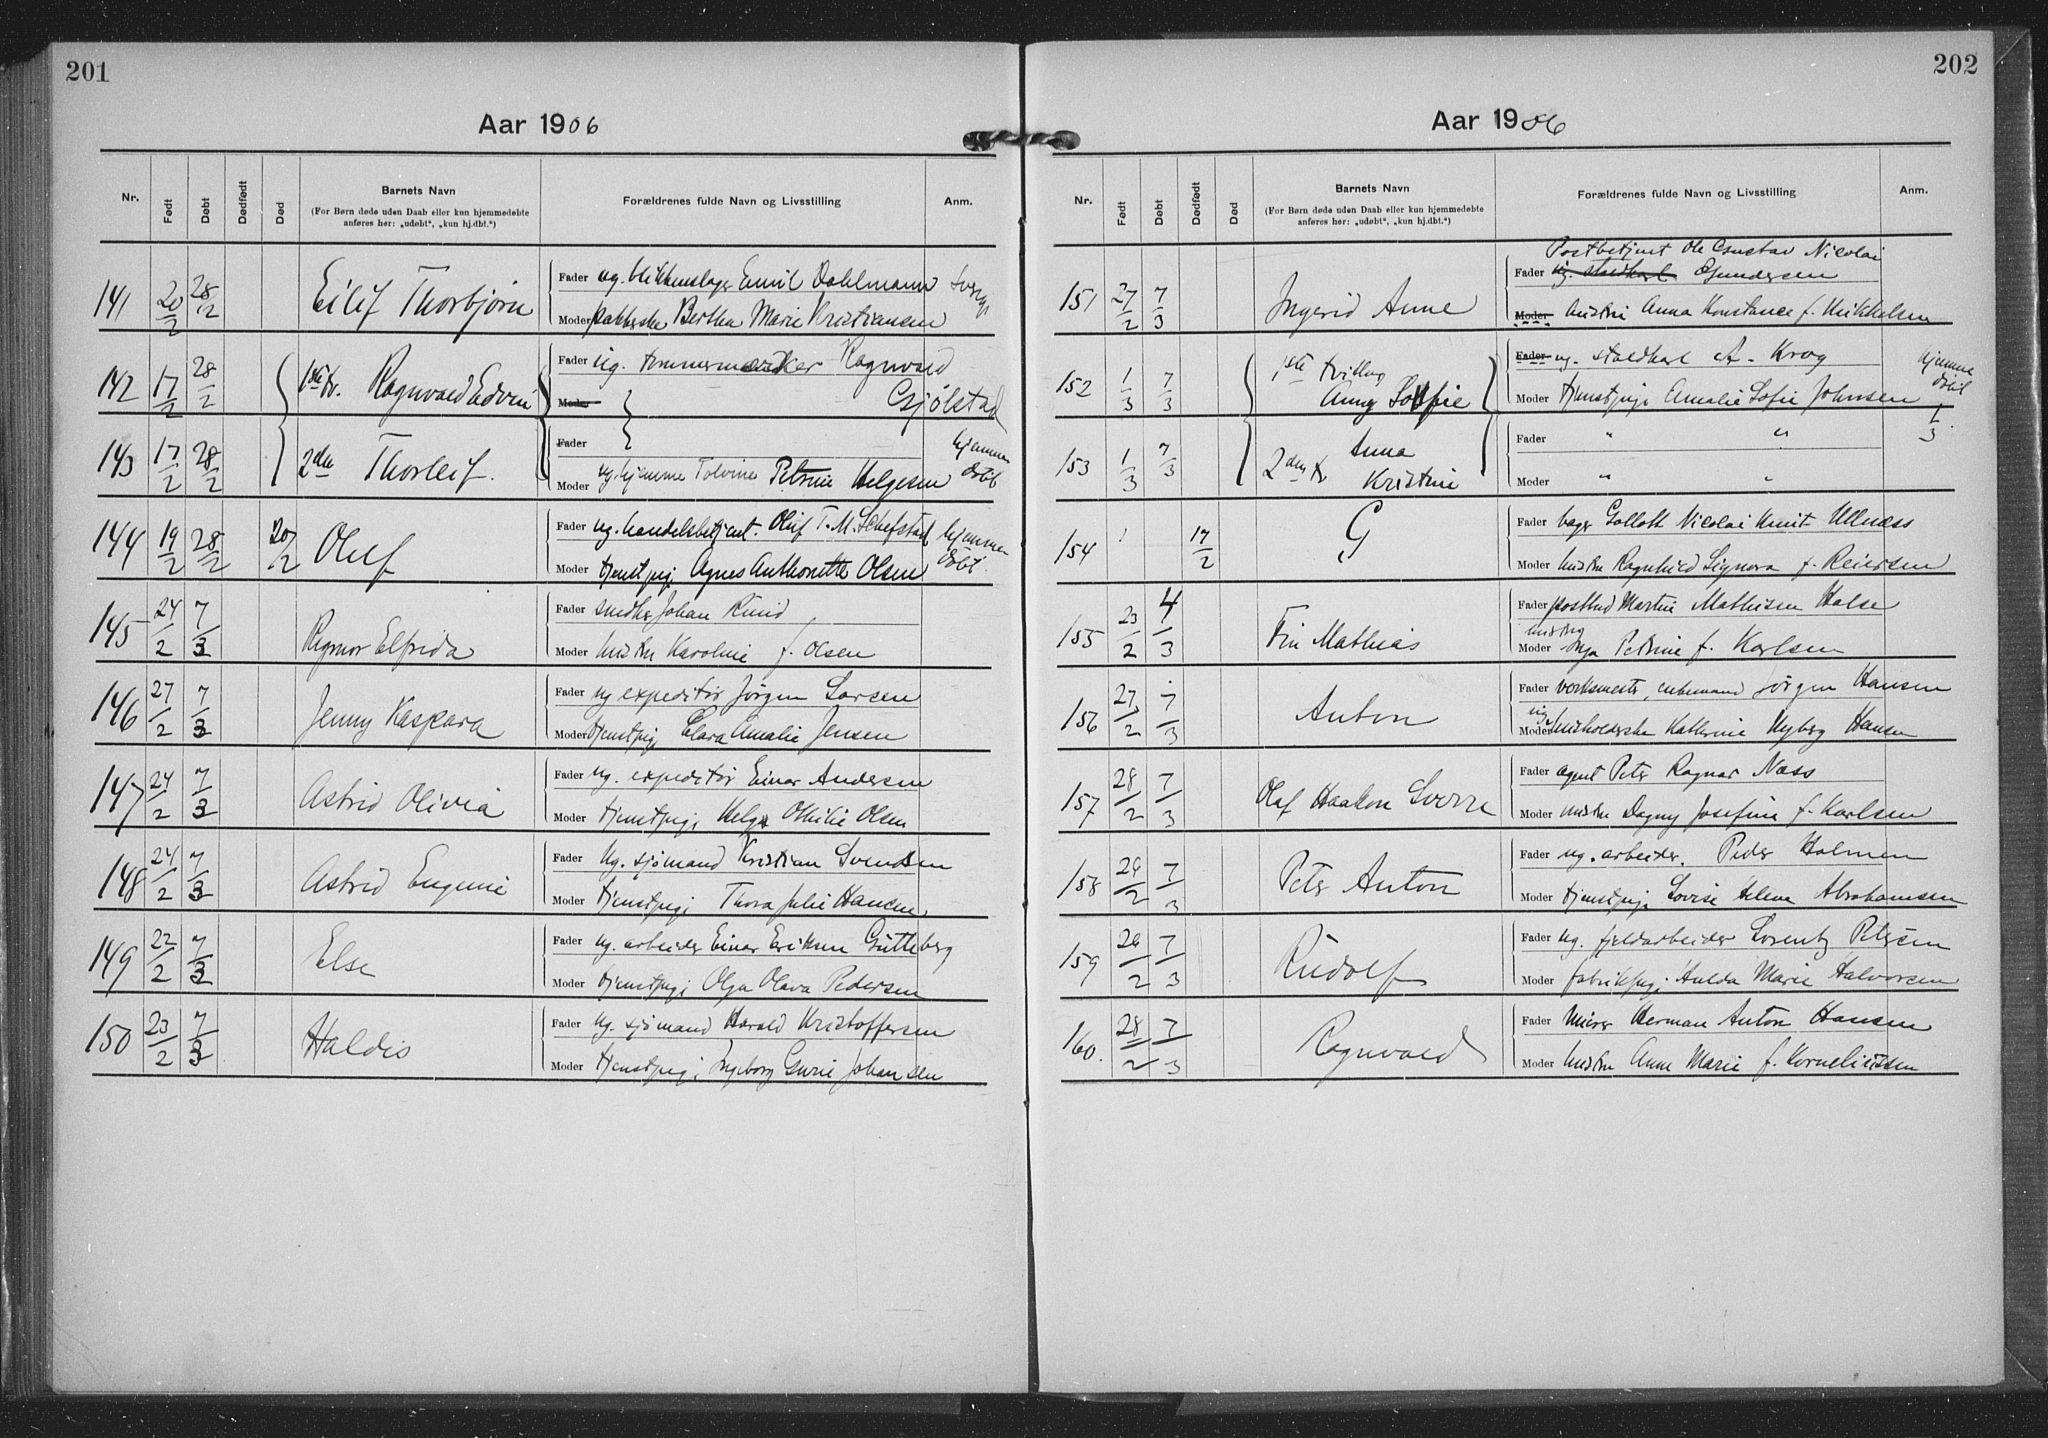 201
Aar 1906
Nr.
Født
Døbt
Dødfødt
Død
Barnets Navn
(For Børn døde uden Daab eller kun hjemmedøbte
anføres her: „udøbt“, „kun hj.dbt.“)
Forældrenes fulde Navn og Livsstilling
Anm.
141 20/2 28/2 Eilif Thorbjørn
Fader ug. blikkenslager Emil Dahlmann
Moder pakkerske Bertha Marie Kristiansen
142 17/2 28/2 1ste tv. Ragnvald Edvin
Fader ug. tømmermærker Ragnvald
Moder Gjölstad
143 17/2 28/2 2den Thorleif.
Fader
Moder ug. hjemme Tolvine Petrine Helgesen
hjemme
döbt
144 19/2 28/2 20/2 Oluf
Fader ug. handelsbetjent. Oluf T. M.
Moder tjenstpig. Agnes Anthonette Olsen
hjemme
döbt
145 24/2 7/3 Ragnvor Elfrida
Fader snedker Johan Ruud
Moder hustru Karoline f. Olsen
146 27/2 7/3 Jenny Kaspara
Fader ug expeditör Jörgen Larsen
Moder tjenstpig. Clara Amalie Jensen
147 24/2 7/3 Astrid Olivia
Fader ug. expeditör Einar Andersen
Moder tjenstpig. Helga Othilie Olsen
148 24/2 7/3 Astrid Eugenie
Fader ug. sjömand Kristian Svendsen
Moder tjenstpig. Thora Julie Hansen
149 22/2 7/3 Else
Fader ug. arbeider Einar Eriksen Gutteberg
Moder tjenstpig. Olga Olava Pedersen
150 23/2 7/3 Haldis
Fader ug. sjömand Harald Kristoffersen
Moder tjenstpig. Ingeborg Gurie Johansen
202
Aar 1906
Nr.
Født
Døbt
Dødfødt
Død
Barnets Navn
(For Børn døde uden Daab eller kun hjemmedøbte
anføres her: „udøbt“, „kun hj.dbt.“)
Forældrenes fulde Navn og Livsstilling
Anm.
151 27/2 7/3 Ingerid Anne
Postbetjent Ole Gustav Nicolai
Fader ug. staldkarl Gundersen
Moder hustru Anna Konstance f. Mikkelsen
152 1/3 7/3 1ste tvilling
Anny Soffie
Fader ug. staldkarl A. Krog
Moder tjenstpige Amalie Sofie Johnsen
hjemme
döbt
1/3
153 1/3 7/3 Anna
2den tv. Kristine
Fader " "
Moder " "
154 17/2 G
Fader bager Nicolai Knut Ullnæss
Moder hustru Ragnhild Signora f. Reiersen
155 23/2 4/3 Fin Mathias
Fader postbud Martin Mathisen Halse
hustru
Moder Inga Petrine f. Karlsen
156 27/2 7/3 Anton
Fader verksmester, enkemand Jörgen Hansen
ug
Moder husholderske Kathrine Nyberg Hansen
157 28/2 7/3 Olaf Haakon Sverre
Fader agent Peter Ragnar Næss
Moder hustru Dagny Josefine f. Karlsen
158 26/2 7/3 Peter Anton
Fader ug. arbeider. Peder Holmen
Moder tjenstpige Lovise Helene Abrahamsen
159 26/2 7/3 Rudolf
Fader ug. fjeldarbeider Lorentz Petersen
Moder fabrikpig. Hulda Marie Halvorsen
160. 28/2 7/3 Ragnvald
Fader murer Herman Anton Hansen
Moder hustru Anne Marie f. Korneliussen